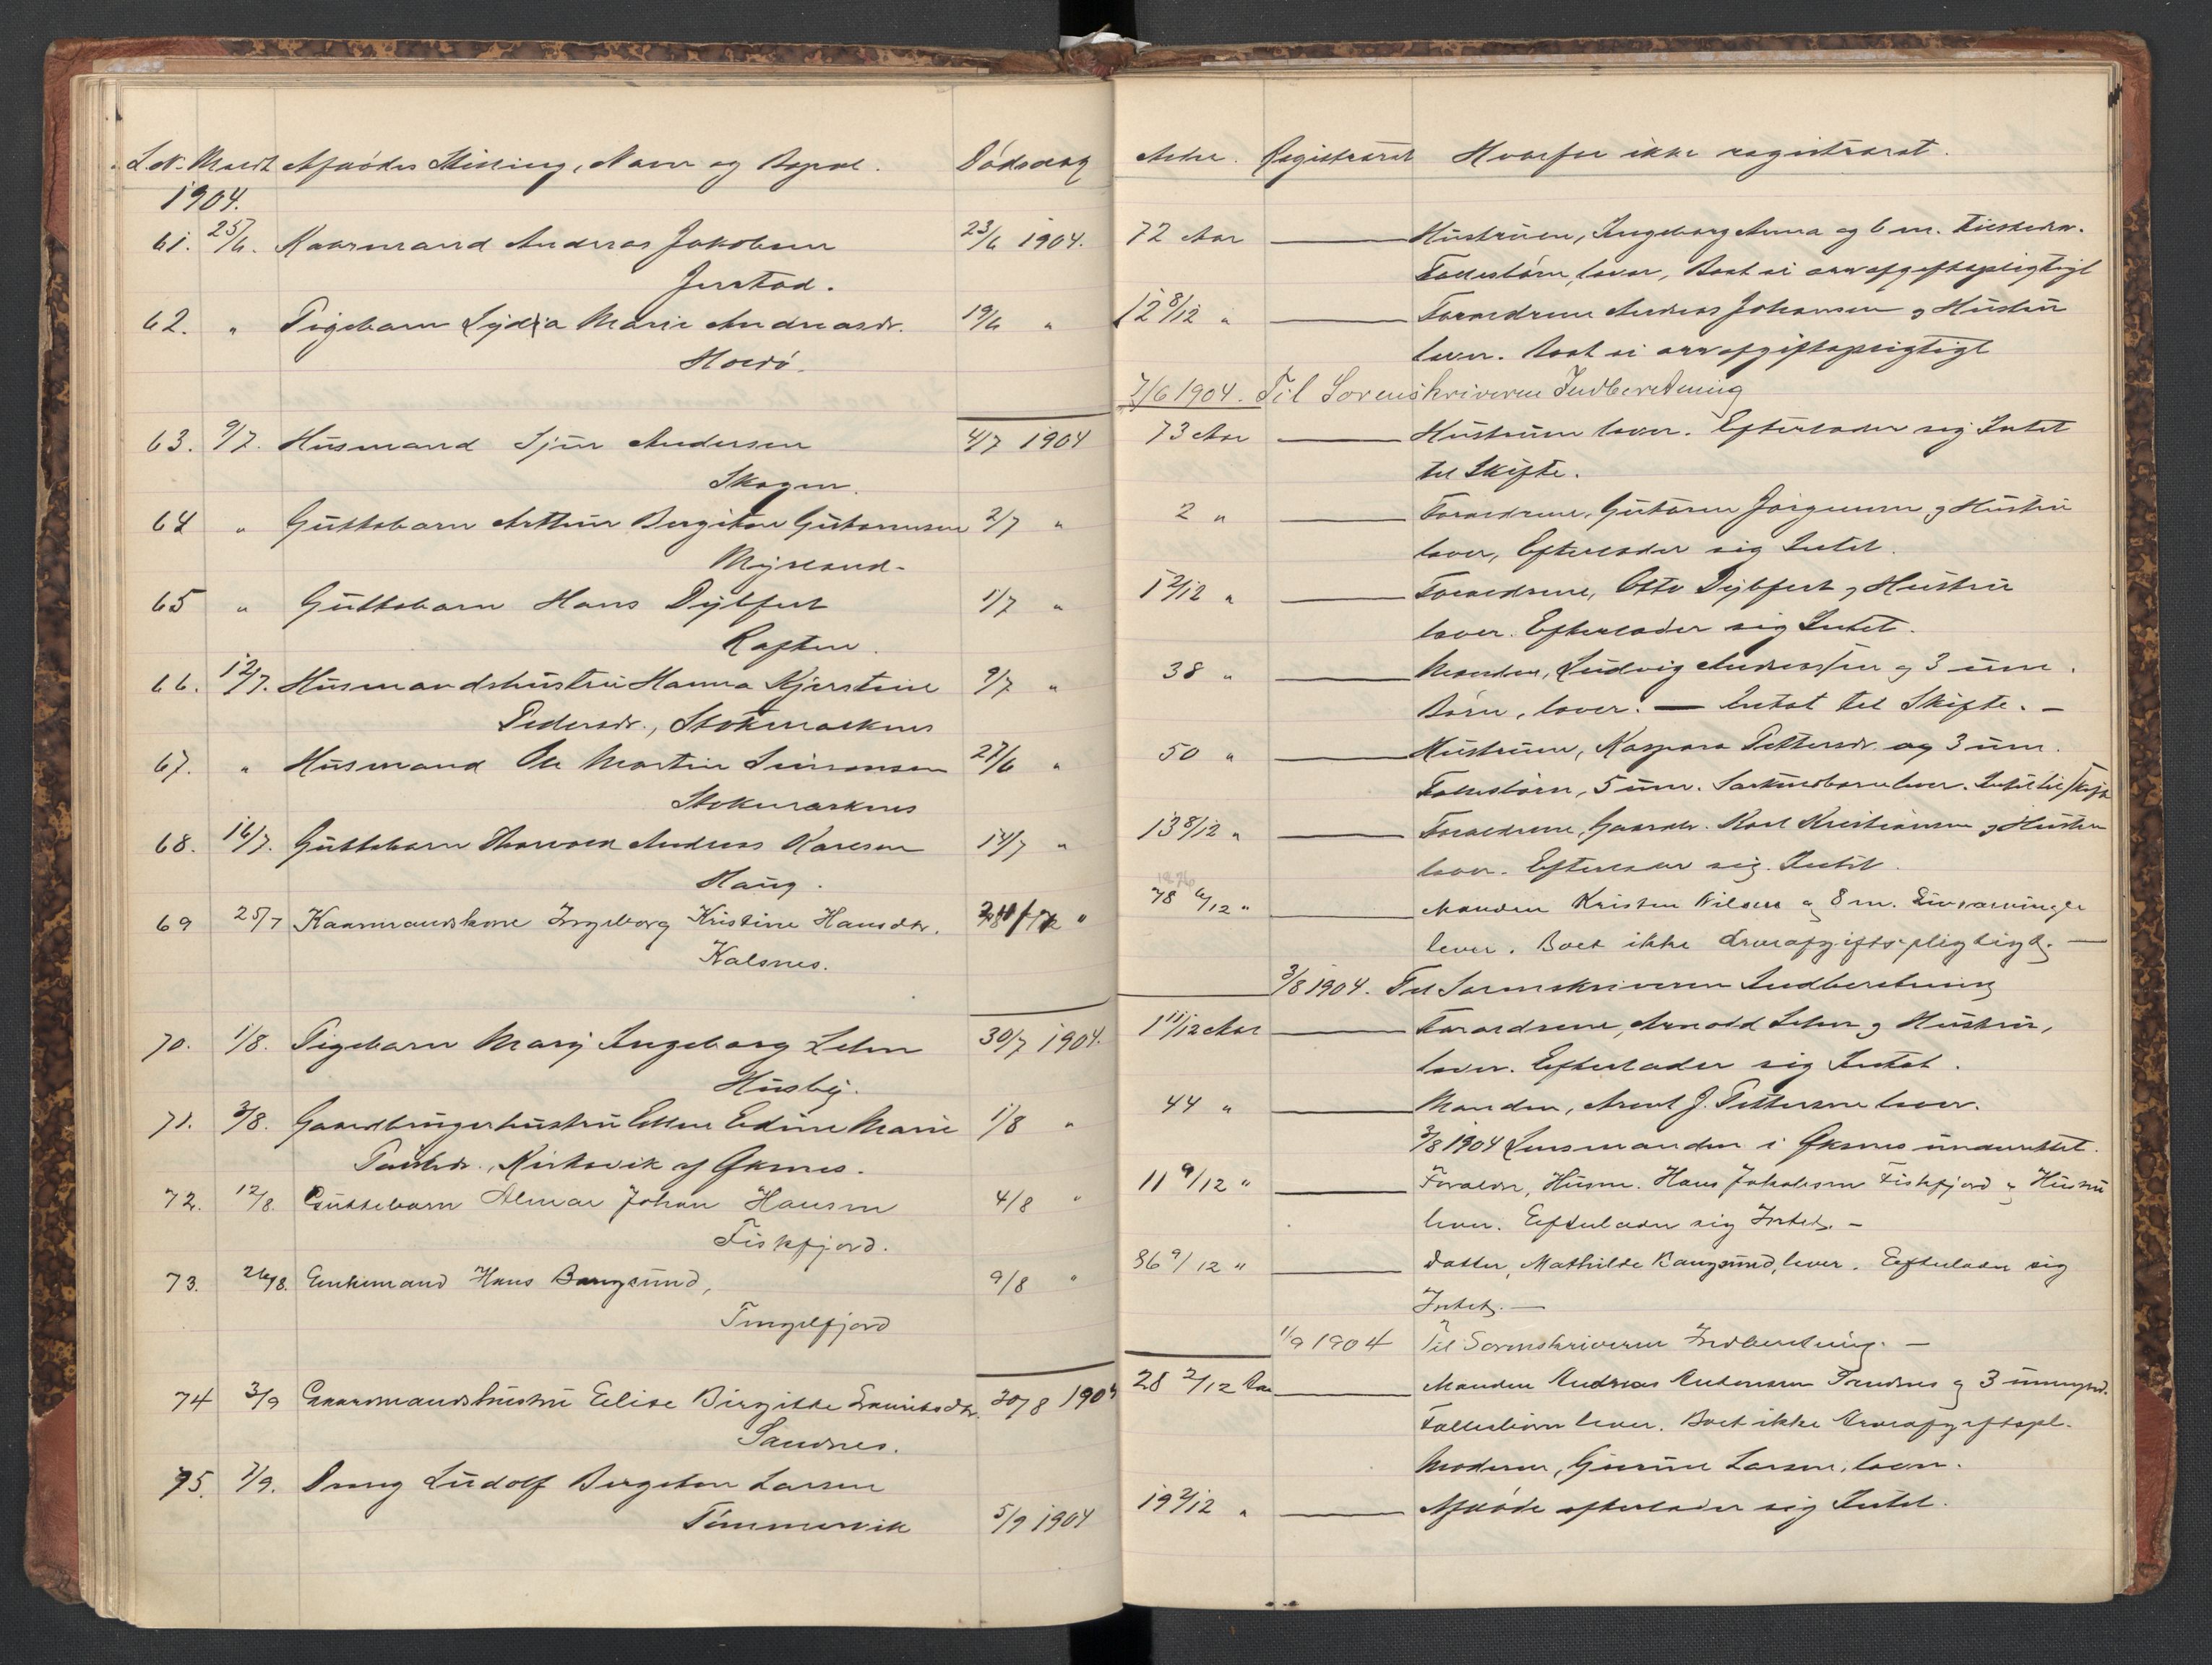 L.N. Meldt Afdødes Stilling, Navn og Bopæl. Dødsdag Alder. Registreret Hvorfor ikke registreret.
1904.
61. 25/6. Kaarmand Andreas Jakobsen 23/6 1904. 72 Aar Hustruen, Ingeborg Anna og 6 m.
Jerstad. Fællesbørn, lever, Boet ei arveafgiftspligtigt
62. " Pigebarn Lydia Marie Andreasdr. 19/6 " 1 2 8/12 " Forældrene Andreas Johansen og Hustru
Hadsø. lever. Boet ei arveafgiftspligtigt
7/6 1904. Til Sorenskriveren Indberetning
63. 9/7. Husmand Sjur Andersen 4/7 1904 73 Aar Hustruen lever. Efterlader sig Intet
Skogen. til Skifte.
64 " Guttebarn Arthur Bergiton Guttormsen 2/7 " 2 " Forældrene, Guttorm Jørgensen og Hustru
Myrland. lever, Efterlader sig Intet.
65 " Guttebarn Hans Dybfest 1/7 " 1 2/12 " Forældrene, Otto Dybfest og Hustru
Raften. lever. Efterlader sig Intet.
66. 12/7. Husmandshustru Hanna Kjerstine 9/7 " 38 " Manden, Ludvig Andreassen og 3 um.
Pedersdr., Stokmarknes Børn, lever. — Intet til Skifte. —
67. " Husmand Ole Martin Simonsen 27/6 " 50 " Hustruen, Kaspara Pettersdr og 3 um.
Stokmarknes Fællesbørn, 5 um. Særkuldbørn lever. Intet til Skifte
68. 16/7. Guttebarn Thorvald Andreas Karlsen 14/7 " 13 8/12 " Forældrene, Gaardbr. Karl Kristiansen og Hustru
Haug. lever. Efterlader sig Intet.
69 25/7 Kaarmandskone Ingeborg Kristine Hansdtr. " 78 6/12 " Manden Kristen Nilsen og 8 m. Livsarvinger
Kalsnes. lever. Boet ikke Arveafgiftspligtigt. —
3/8 1904. Til Sorenskriveren Indberetning
70. 1/8. Pigebarn Mary Ingeborg Lehn 30/7 1904. 1 11/12 Aar Forældrene, Arnold Lehn og Hustru,
Husby. lever. Efterlader sig Intet.
71. 3/8. Gaardbrugerhustru Ellen Edine Marie 1/8 " 44 " Manden, Arent J. Pettersen lever.
Paulsdr., Kirkevik af Øksnes. 3/8 1904 Lensmanden i Øksnes underrettet.
72. 12/8. Guttebarn Almar Johan Hansen 4/8 " 11 9/12 " Forældr, Husm. Hans Jakobsen Fiskfjord og Hustru
Fiskfjord. lever. Efterlader sig Intet. —
73. 26/8. Enkemand Hans Bangsund, 9/8 " 86 9/12 " Datter, Mathilde Bangsund, lever. Efterlader sig
Tengelfjord Intet. —
1/9 1904 Til Sorenskriveren Indberetning. —
74 3/9 Gaardmandshustru Elise Birgitte Lauritsdtr. 30/8 1904 28 2/12 Aar Manden Andreas Andersen Sandnes og 3 umynd.
Sandnes. Fællesbørn lever. Boet ikke Arveafgiftspl.
75. 7/9. Dreng Ludolf Bergeton Larsen Moderen, Gurine Larsen, lever.
Tømmervik 5/9 1904 19 2/12 " Afdøde efterlader sig Intet.